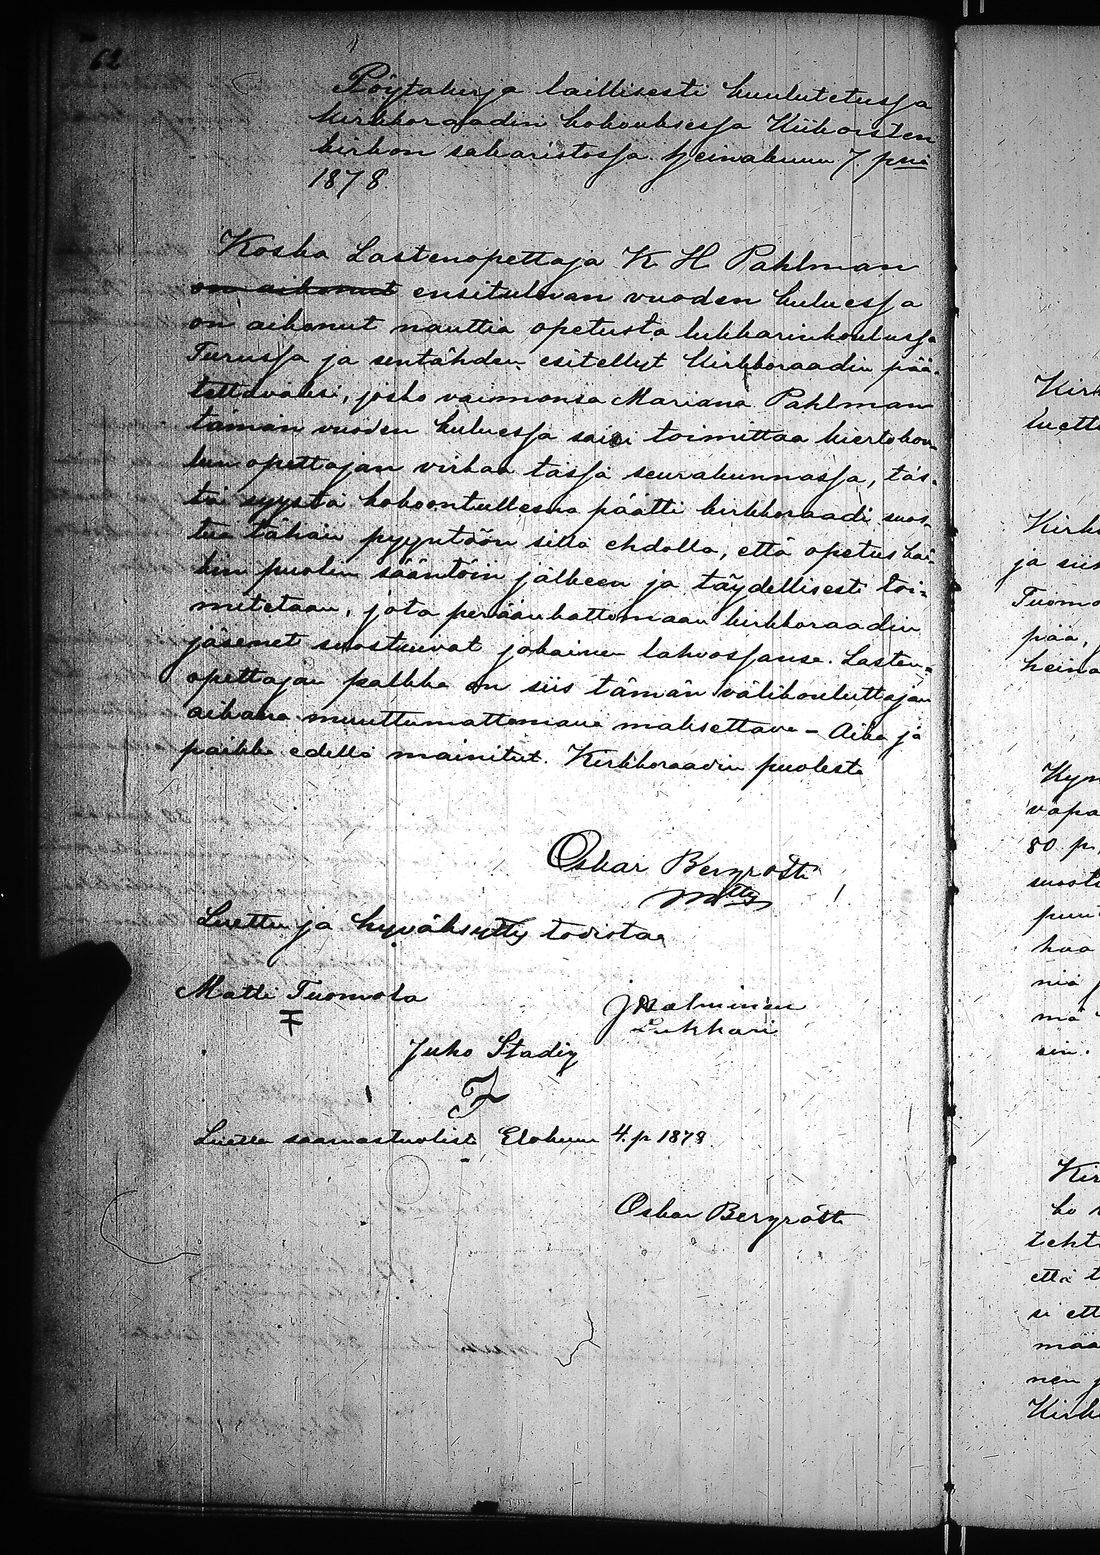 62
Pöytäkirja laillisesti kuulutetussa
kirkkoraadin kokouksessa Kiikoisten
kirkon sakaristossa heinäkuun 7. pnä
1878.
Koska Lastenopettaja K. H. Pahlman
on aikonut ensitulevan vuoden kuluessa
on aikonut nauttia opetusta lukkarinkoulussa
Turussa ja sentähden esitellyt kirkkoraadin pää-
tettäväksi, josko vaimonsa Mariana Pahlman
tämän vuoden kuluessa saisi toimittaa kiertokou-
lun opettajan virkaa tässä seurakunnassa, täs-
tä syystä kokoontullessa päätti kirkkoraadi suos-
tua tähän pyyntöön sillä ehdolla, että opetus kai-
kin puolin sääntöin jälkeen ja täydellisesti toi-
mitetaan, jota peräänkattomaan kirkkoraadin
jäsenet suostuivat jokainen lahvossansa. Lasten-
opettajan palkka on siis tämän välikouluttajan
aikana muuttumattomana maksettava – Aika ja
paikka edellä mainitut. Kirkkoraadin puolesta
Oskar Bergroth
Luettu ja hyväksytty todistaa
Matti Tuomola
J Salminen
Lukkari
Juho Stadig
Luettu saarnastuolist Elokuun 4. p 1878.
Oskar Bergroth
Kirk
luettu
Kirk
ja siin
Tuomo
pää,
heinä
Kym
vapa
80 p.
suost
puu
haa
niä
mä
sin.
Kir
ko
teht
että t
si ett
mää
nen j
Kirk